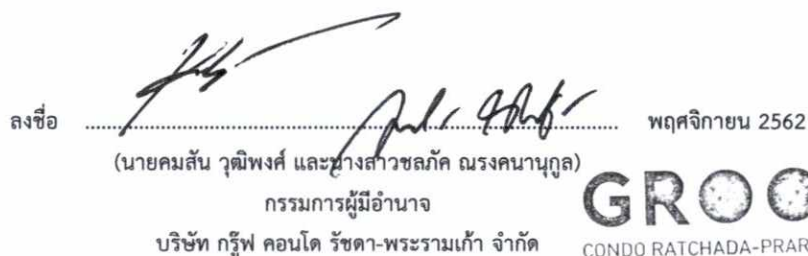 ลงชื่อ ........................................ พฤศจิกายน 2562
(นายคมสัน วุฒิพงศ์ และนางสาวชลภัค ณรงคนานุกูล)
กรรมการผู้มีอำนาจ
บริษัท กรู๊ฟ คอนโด รัชดา-พระรามเก้า จำกัด
GROO
CONDO RATCHADA-PRAR